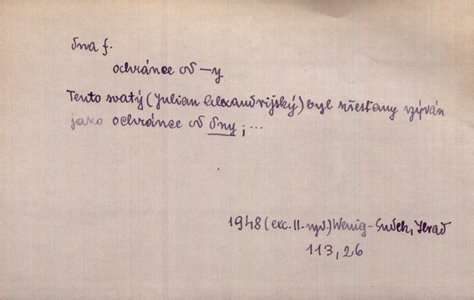 dna f.
ochránce od –y.
Tento svatý (Julian Alexandrijský) byl křesťany vzýván
jako ochránce od dny; ...
1948 (exc. II. vyd.) Wenig-
113, 26